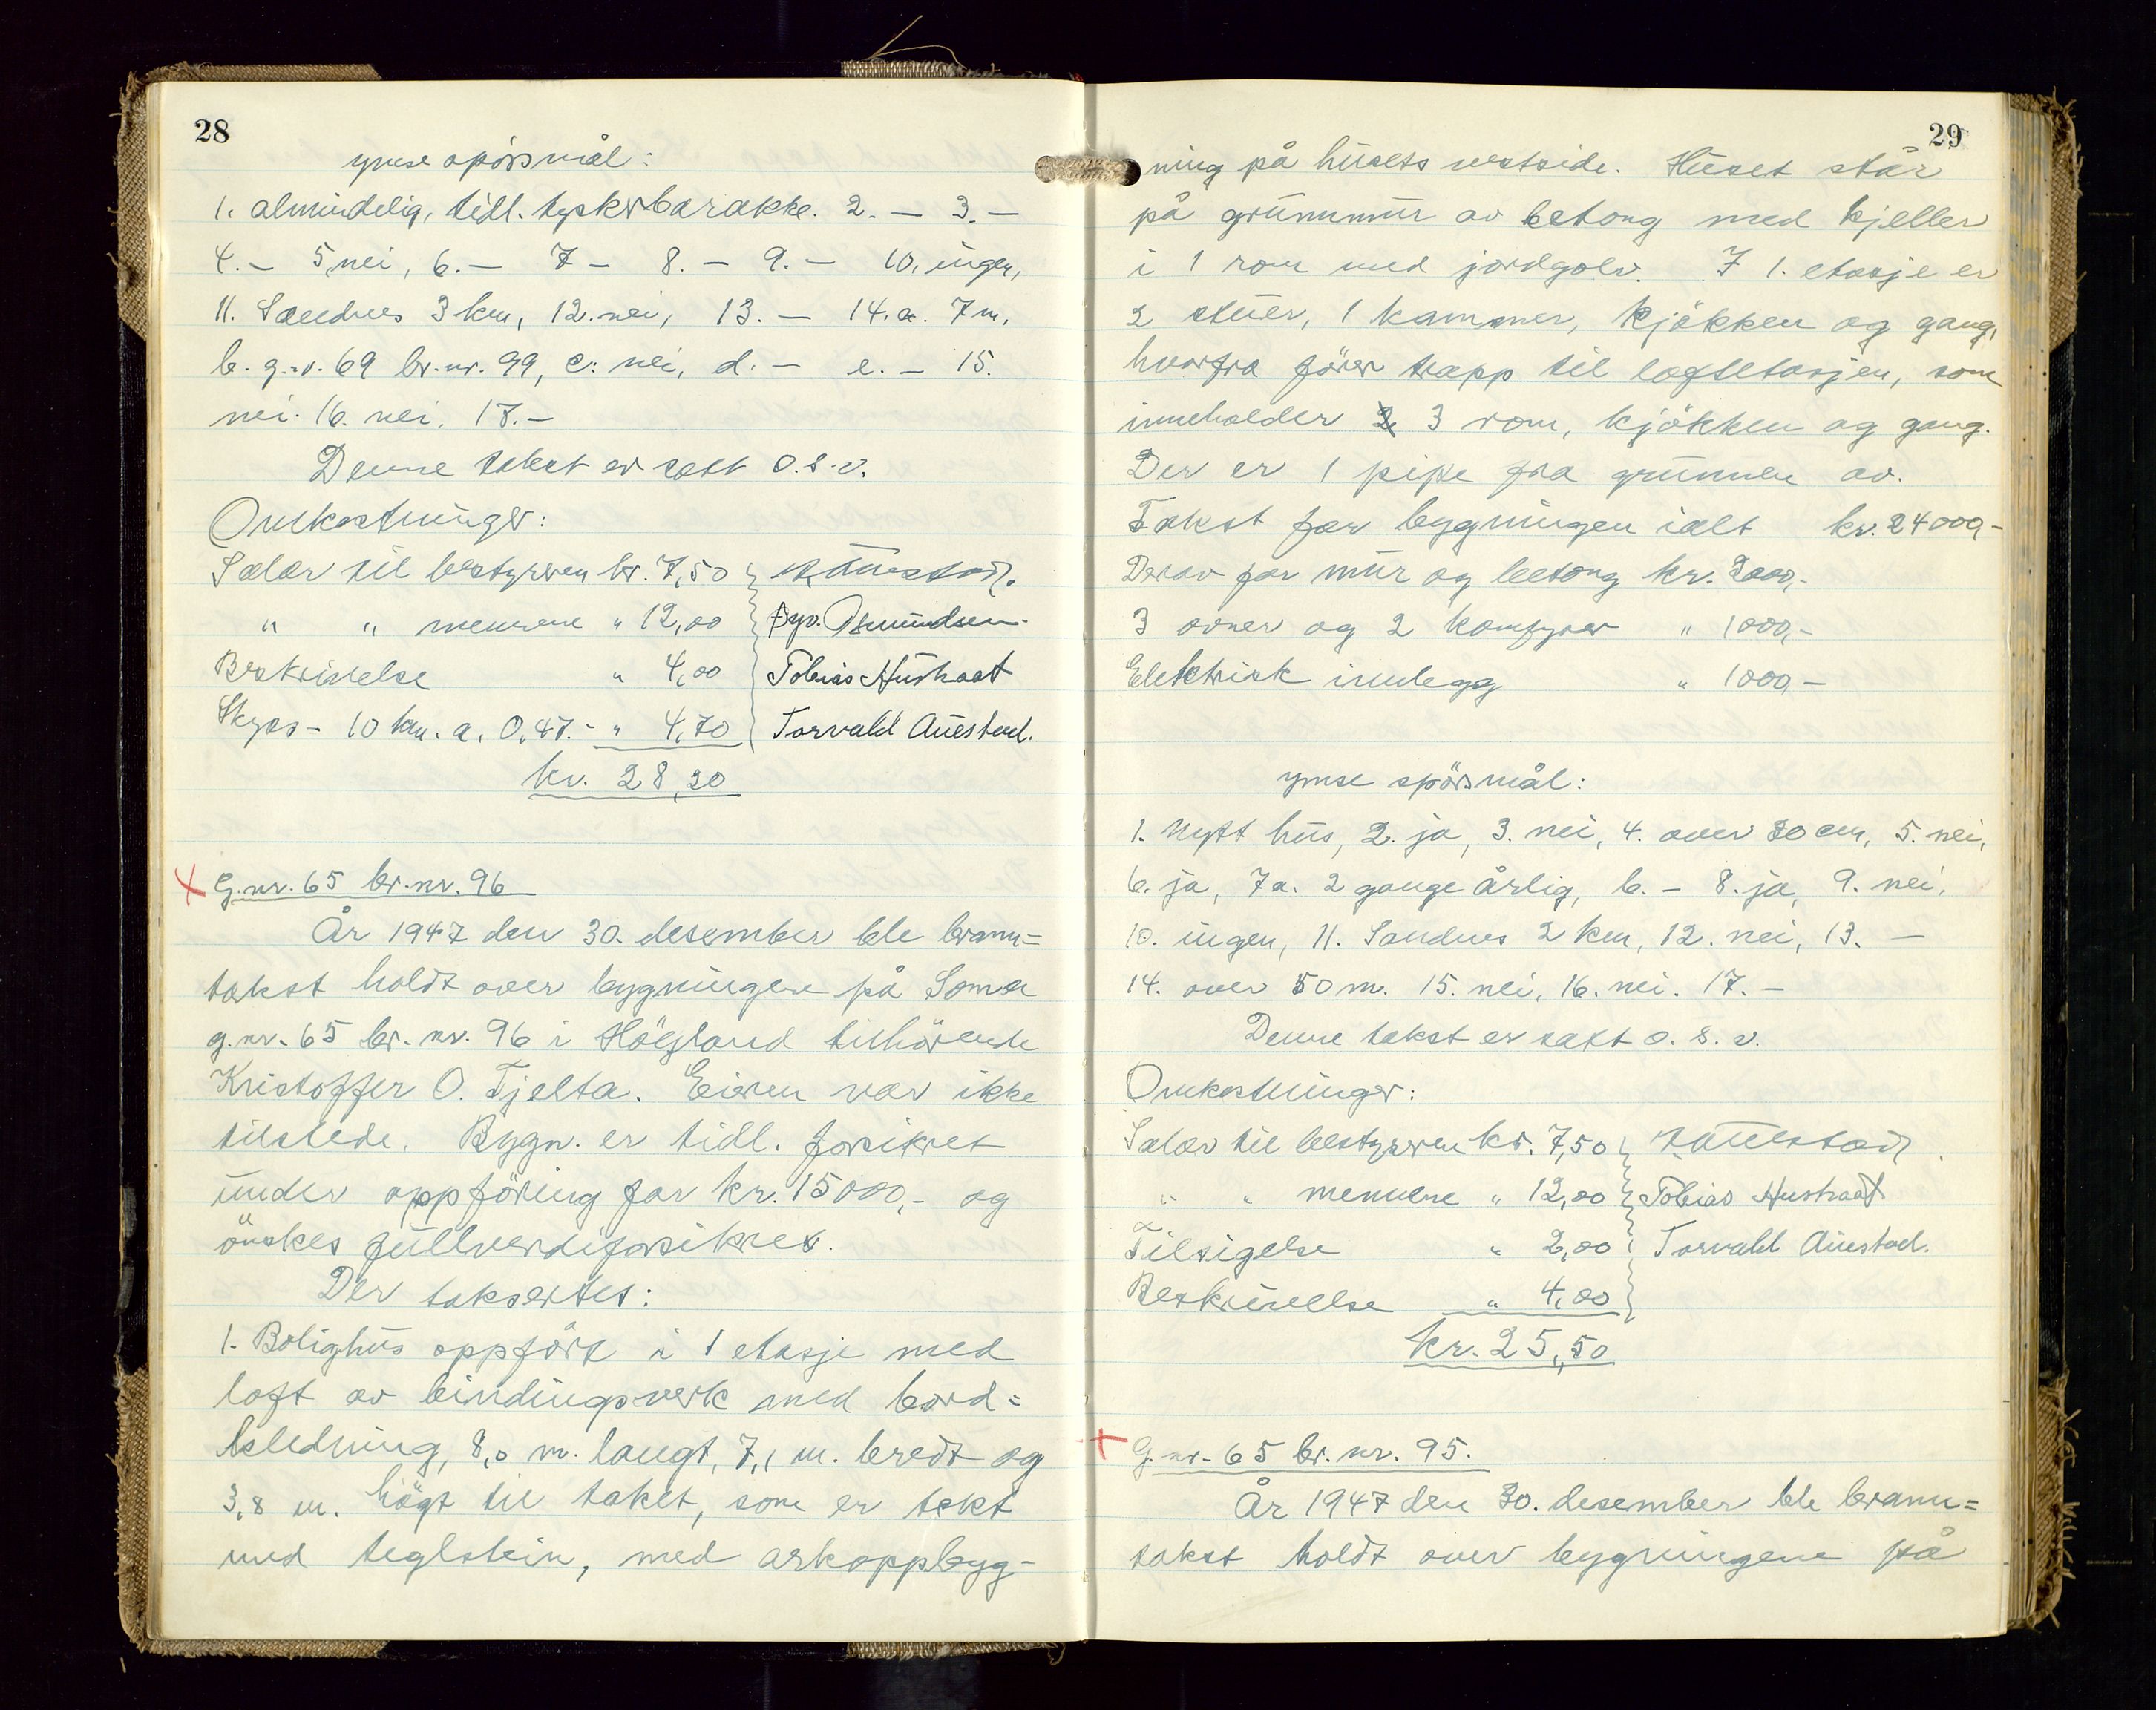 28
ymse spörsmål:
1. almindelig, tidl. tyskerbarakke. 2. — 3. —
4. — 5, nei, 6. — 7 — 8. — 9. — 10. ingen,
11. Sandnes 3 km, 12. nei, 13. — 14. a. 7 m,
b. g.nr. 69 br.nr. 99, c: nei, d. — e. — 15.
nei. 16. nei. 17. —
Denne takst er satt o.s.v.
Omkostninger:
Salær til bestyreren kr. 7,50
" " mennene " 12,00 Asmundsen
Beskrivelse " 4,00 Tobias Austraat
Skyss - 10 km. a. 0,47. - " 4,70 Torvald Auestad.
kr. 28,20
G.nr. 65 br.nr. 96
År 1947 den 30. desember ble brann=
takst holdt over bygningene på Soma
g.nr. 65 br. nr. 96 i Högland tilhörende
Kristoffer O. Tjelta. Eieren var ikke
tilstede. Bygn. er tidl. forsikret
under oppföring for kr. 15000,- og
önskes fullverdiforsikret.
Der taksertes:
1. Bolighus oppfört i 1 etasje med
loft av bindingsverk med bord=
kledning, 8,0 m. langt, 7,1 m. bredt og
3,8 m. högt til taket, som er tekt
med teglstein, med arkoppbyg-
29
ning på husets vestside. Huset står
på grunnmur av betong med kjeller
i 1 rom med jordgolv. I 1. etasje er
2 stuer, 1 kammer, kjökken og gang,
hvorfra förer trapp til loftetasjen, som
inneholder 2 3 rom, kjökken og gang.
Der er 1 pipe fra grunnen av.
Takst for bygningen ialt kr. 24000,-
Derav for mur og betong kr. 3000,-
3 ovner og 2 komfyrer " 1000,-
Elektrisk innlegg " 1000,-
ymse spörsmål:
1. Nytt hus, 2. ja, 3. nei, 4. over 30 cm, 5. nei,
6. ja, 7a. 2 gange årlig, b. - 8. ja, 9. nei,
10. ingen, 11. Sandnes 2 km, 12. nei, 13. —
14. over 50 m. 15. nei, 16. nei. 17. —
Denne takst er satt o. s. v.
Omkostninger:
Salær til bestyreren kr. 7,50
" " mennene " 12,00 Tobias Austraat
Tilsigelse " 2,00 Torvald Auestad.
Beskrivelse " 4,00
kr. 25,50
G.nr. 65 br. nr. 95.
År 1947 den 30. desember ble brann=
takst holdt over bygningene på